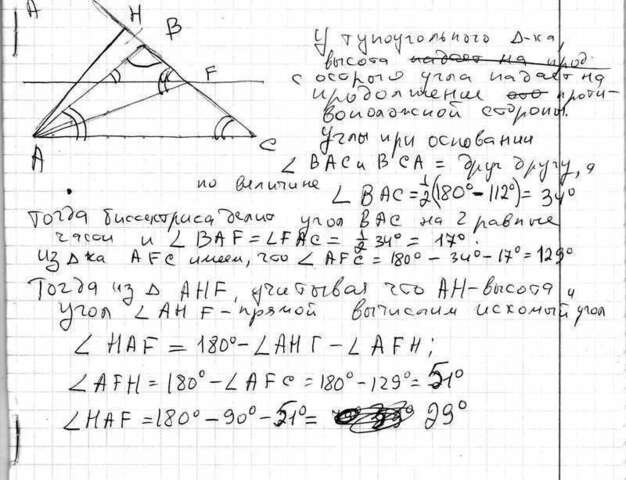 A
H
B
F
A
C
У тупоугольного Δ-ка,
высота падает на прод.
с острого угла падает на
продолжение его проти-
воположной стороны.
Углы при основании
∠ BAC и BCA = друг другу, а
по величине ∠ BAC = 1/2(180° - 112°) = 34°
Тогда биссектриса делит угол BAC на 2 равные
части и ∠ BAF = ∠FAC = 1/2 34° = 17°.
Из Δка AFC имеем, что ∠ AFC = 180° - 34° - 17° = 129°
Тогда из Δ AHF, учитывая что AH-высота и
угол ∠ AHF - прямой вычислим искомый угол
∠ HAF = 180° - ∠AHF - ∠AFH;
∠AFH = 180° - ∠AFC = 180° - 129° = 51°
∠HAF = 180° - 90° - 51° = 29°